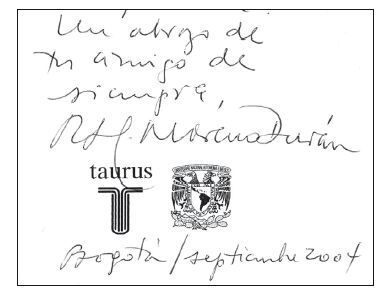 Un abrazo de
tu amigo de
siempre,
R.H. Moreno-Durán
taurus
T
Bogotá / septiembre 2004